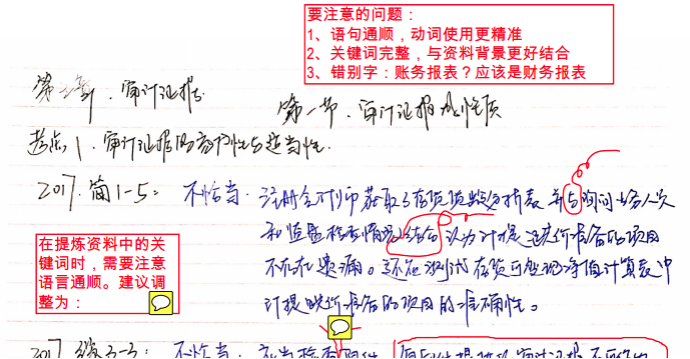 要注意的问题：
1、语句通顺，动词使用更精准
2、关键词完整，与资料背景更好结合
3、错别字：账务报表？应该是财务报表
第三章、审计证据
第一节、审计证据的性质
考点1、审计证据的充分性与适当性.
2017.简1-5：不恰当.注册会计师获取了存货货龄分析表 并与询问业务人员
和监盘 情况结合 认为计提跌价准备的项目
不存在遗漏。还应测试存货可变现净值计算表中
计提跌价准备的项目的准确性。
在提炼资料中的关
键词时，需要注意
语言通顺。建议调
整为：
2017.综3-3：不恰当.